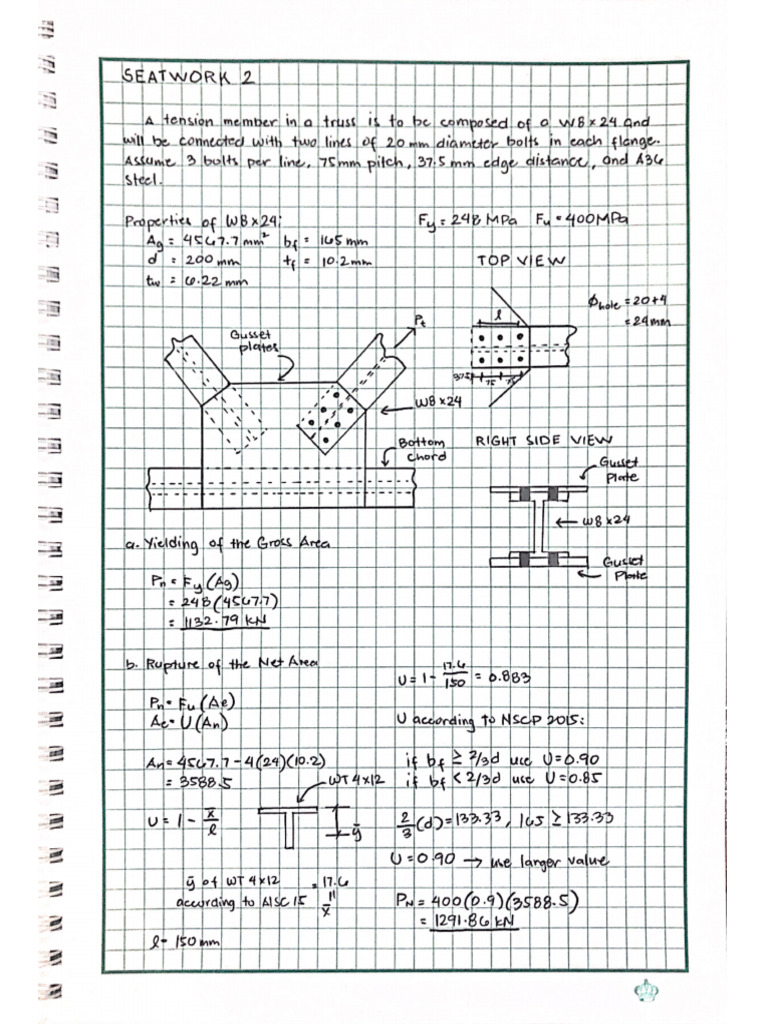 SEATWORK 2
A tension member in a truss is to be composed of a W8 x 24 and
will be connected with two lines of 20 mm diameter bolts in each flange.
Assume 3 bolts per line, 75mm pitch, 37.5 mm edge distance, and A36
steel.
Properties of W8 x 24:
Fy = 248 MPa Fu = 400MPa
Ag = 4567.7 mm² bf = 165 mm
d = 200 mm tf = 10.2mm
tw = 6.22 mm
TOP VIEW
ϕhole = 20+4
= 24mm
l
37.5 75 75
Gusset
plates
Pt
W8 x 24
Bottom
chord
RIGHT SIDE VIEW
Gusset
Plate
W8 x 24
Gusset
Plate
a. Yielding of the Gross Area
Pn = Fy (Ag)
= 248 (4567.7)
= 1132.79 kN
b. Rupture of the Net Area
Pn = Fu (Ae)
Ae = U (An)
An = 4567.7 - 4(24)(10.2)
= 3588.5
WT 4 x 12
U = 1 - x̄/l
ȳ
ȳ of WT 4 x 12 = 17.6
according to AISC 15 " x̄
l = 150 mm
U = 1 - 17.6/150 = 0.883
U according to NSCP 2015:
if bf ≥ 2/3d use U = 0.90
if bf < 2/3d use U = 0.85
2/3 (d) = 133.33, 165 ≥ 133.33
U = 0.90 → use larger value
PN = 400(0.9)(3588.5)
= 1291.86 kN